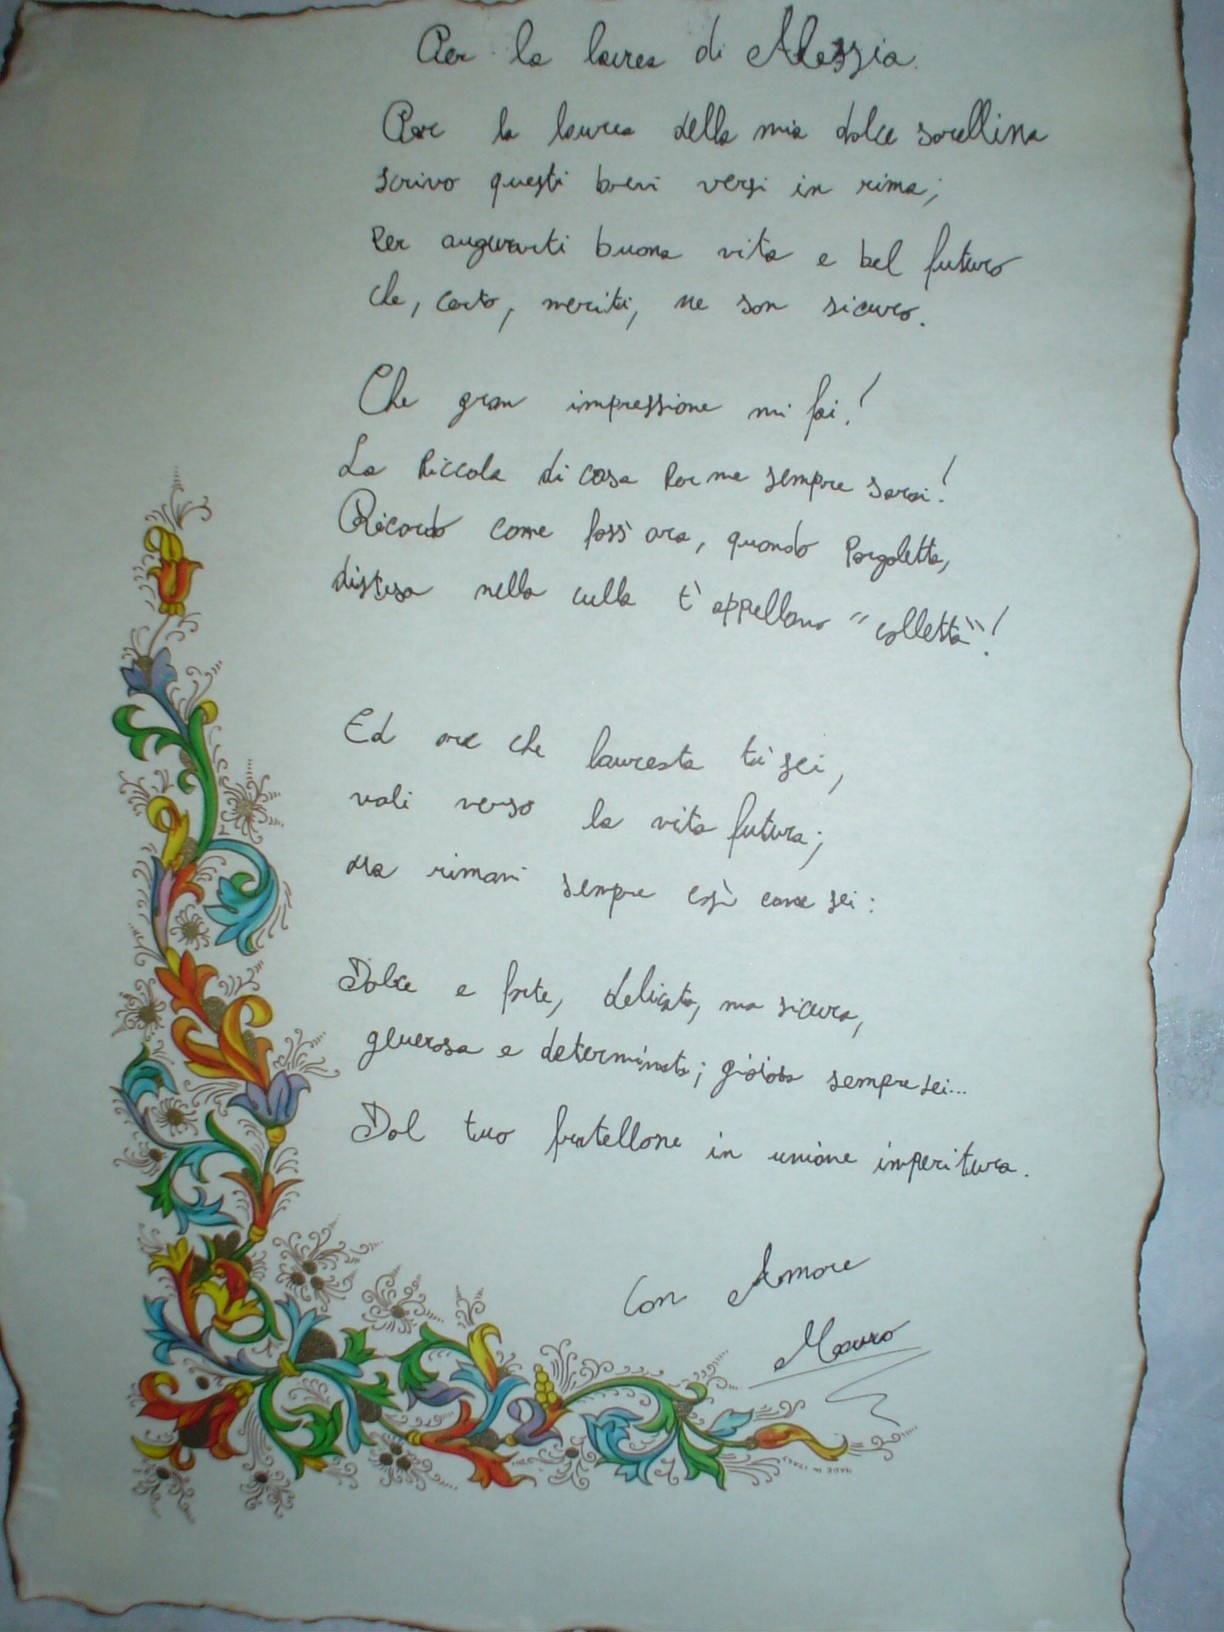 Per la laurea di Alessia.
Per la laurea della mia dolce sorellina
scrivo questi brevi versi in rima;
Per augurarti buona vita e bel futuro
che, certo, meriti, ne son sicuro.
Che gran impressione mi fai!
La Piccola di casa Per me sempre sarai!
Ricordo come foss' ora, quando Pargoletta,
distesa nella culla t' appellano "colletta"!
Ed ora che laureata tu sei,
voli verso la vita futura;
ma rimani sempre così come sei:
Dolce e forte, delicata, ma sicura,
generosa e determinata; gioiosa sempre sei...
Dal tuo fratellone in unione imperitura.
Con Amore
Mauro
MADE IN ITALY